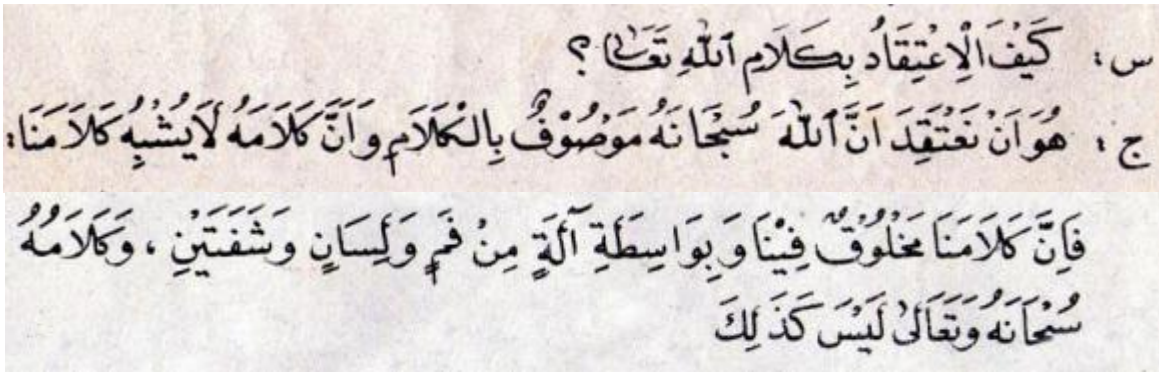 س: كَيْفَ الْاِعْتِقَادُ بِكَلَامِ اللّٰهِ تَعَالٰى؟
ج: هُوَ اَنْ نَعْتَقِدَ اَنَّ اللّٰهَ سُبْحَانَهُ مَوْصُوْفٌ بِالْكَلَامِ وَاَنَّ كَلَامَهُ لَايُشْبِهُ كَلَامَنَا:
فَاِنَّ كَلَامَنَا مَخْلُوْقٌ فِيْنَا وَبِوَاسِطَةِ آلَةٍ مِنْ فَمٍ وَلِسَانٍ وَشَفَتَيْنِ، وَكَلَامُهُ
سُبْحَانَهُ وَتَعَالَىٰ لَيْسَ كَذَلِكَ